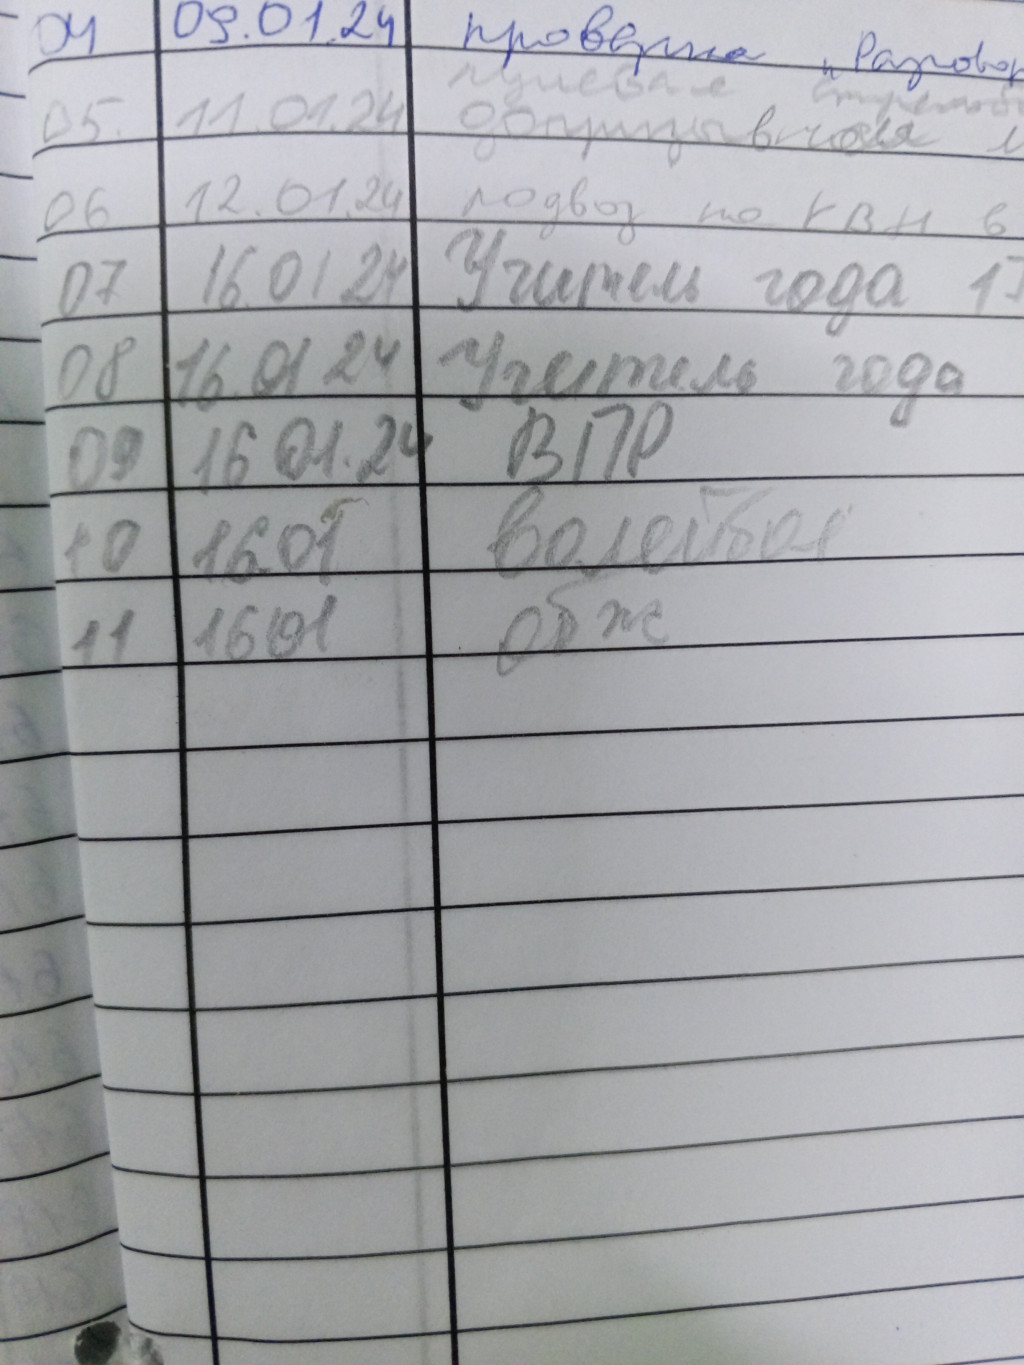 04 09.01.24 проверка "Разговор
пулевая стрельба
05. 11.01.24 допризывная м
06 12.01.24 подвоз на КВН в
07 16.01 24 Учитель года 1
08 16.01 24 Учитель года
09 16 01.24 ВПР
10 16.01 волейбол
11 16 01 обж